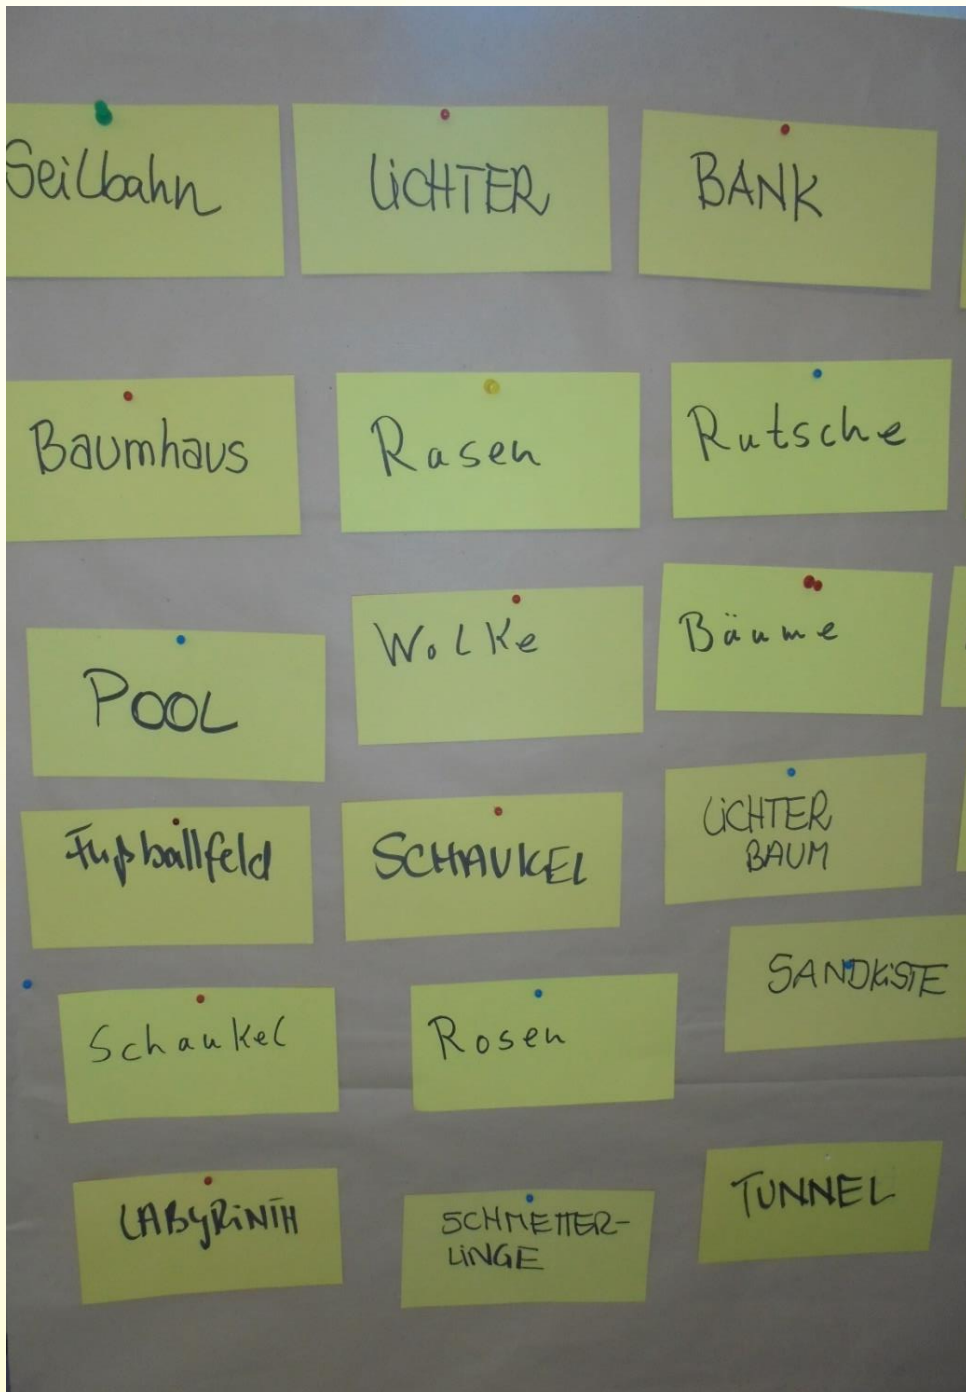 Seilbahn
LiCHTER
BANK
Baumhaus
Rasen
Rutsche
POOL
Wolke
Bäume
Fußballfeld
SCHAUKEL
LiCHTER
BAUM
Schaukel
Rosen
SANDKiSTE
LAByRiNTH
SCHMETTER-
LiNGE
TUNNEL